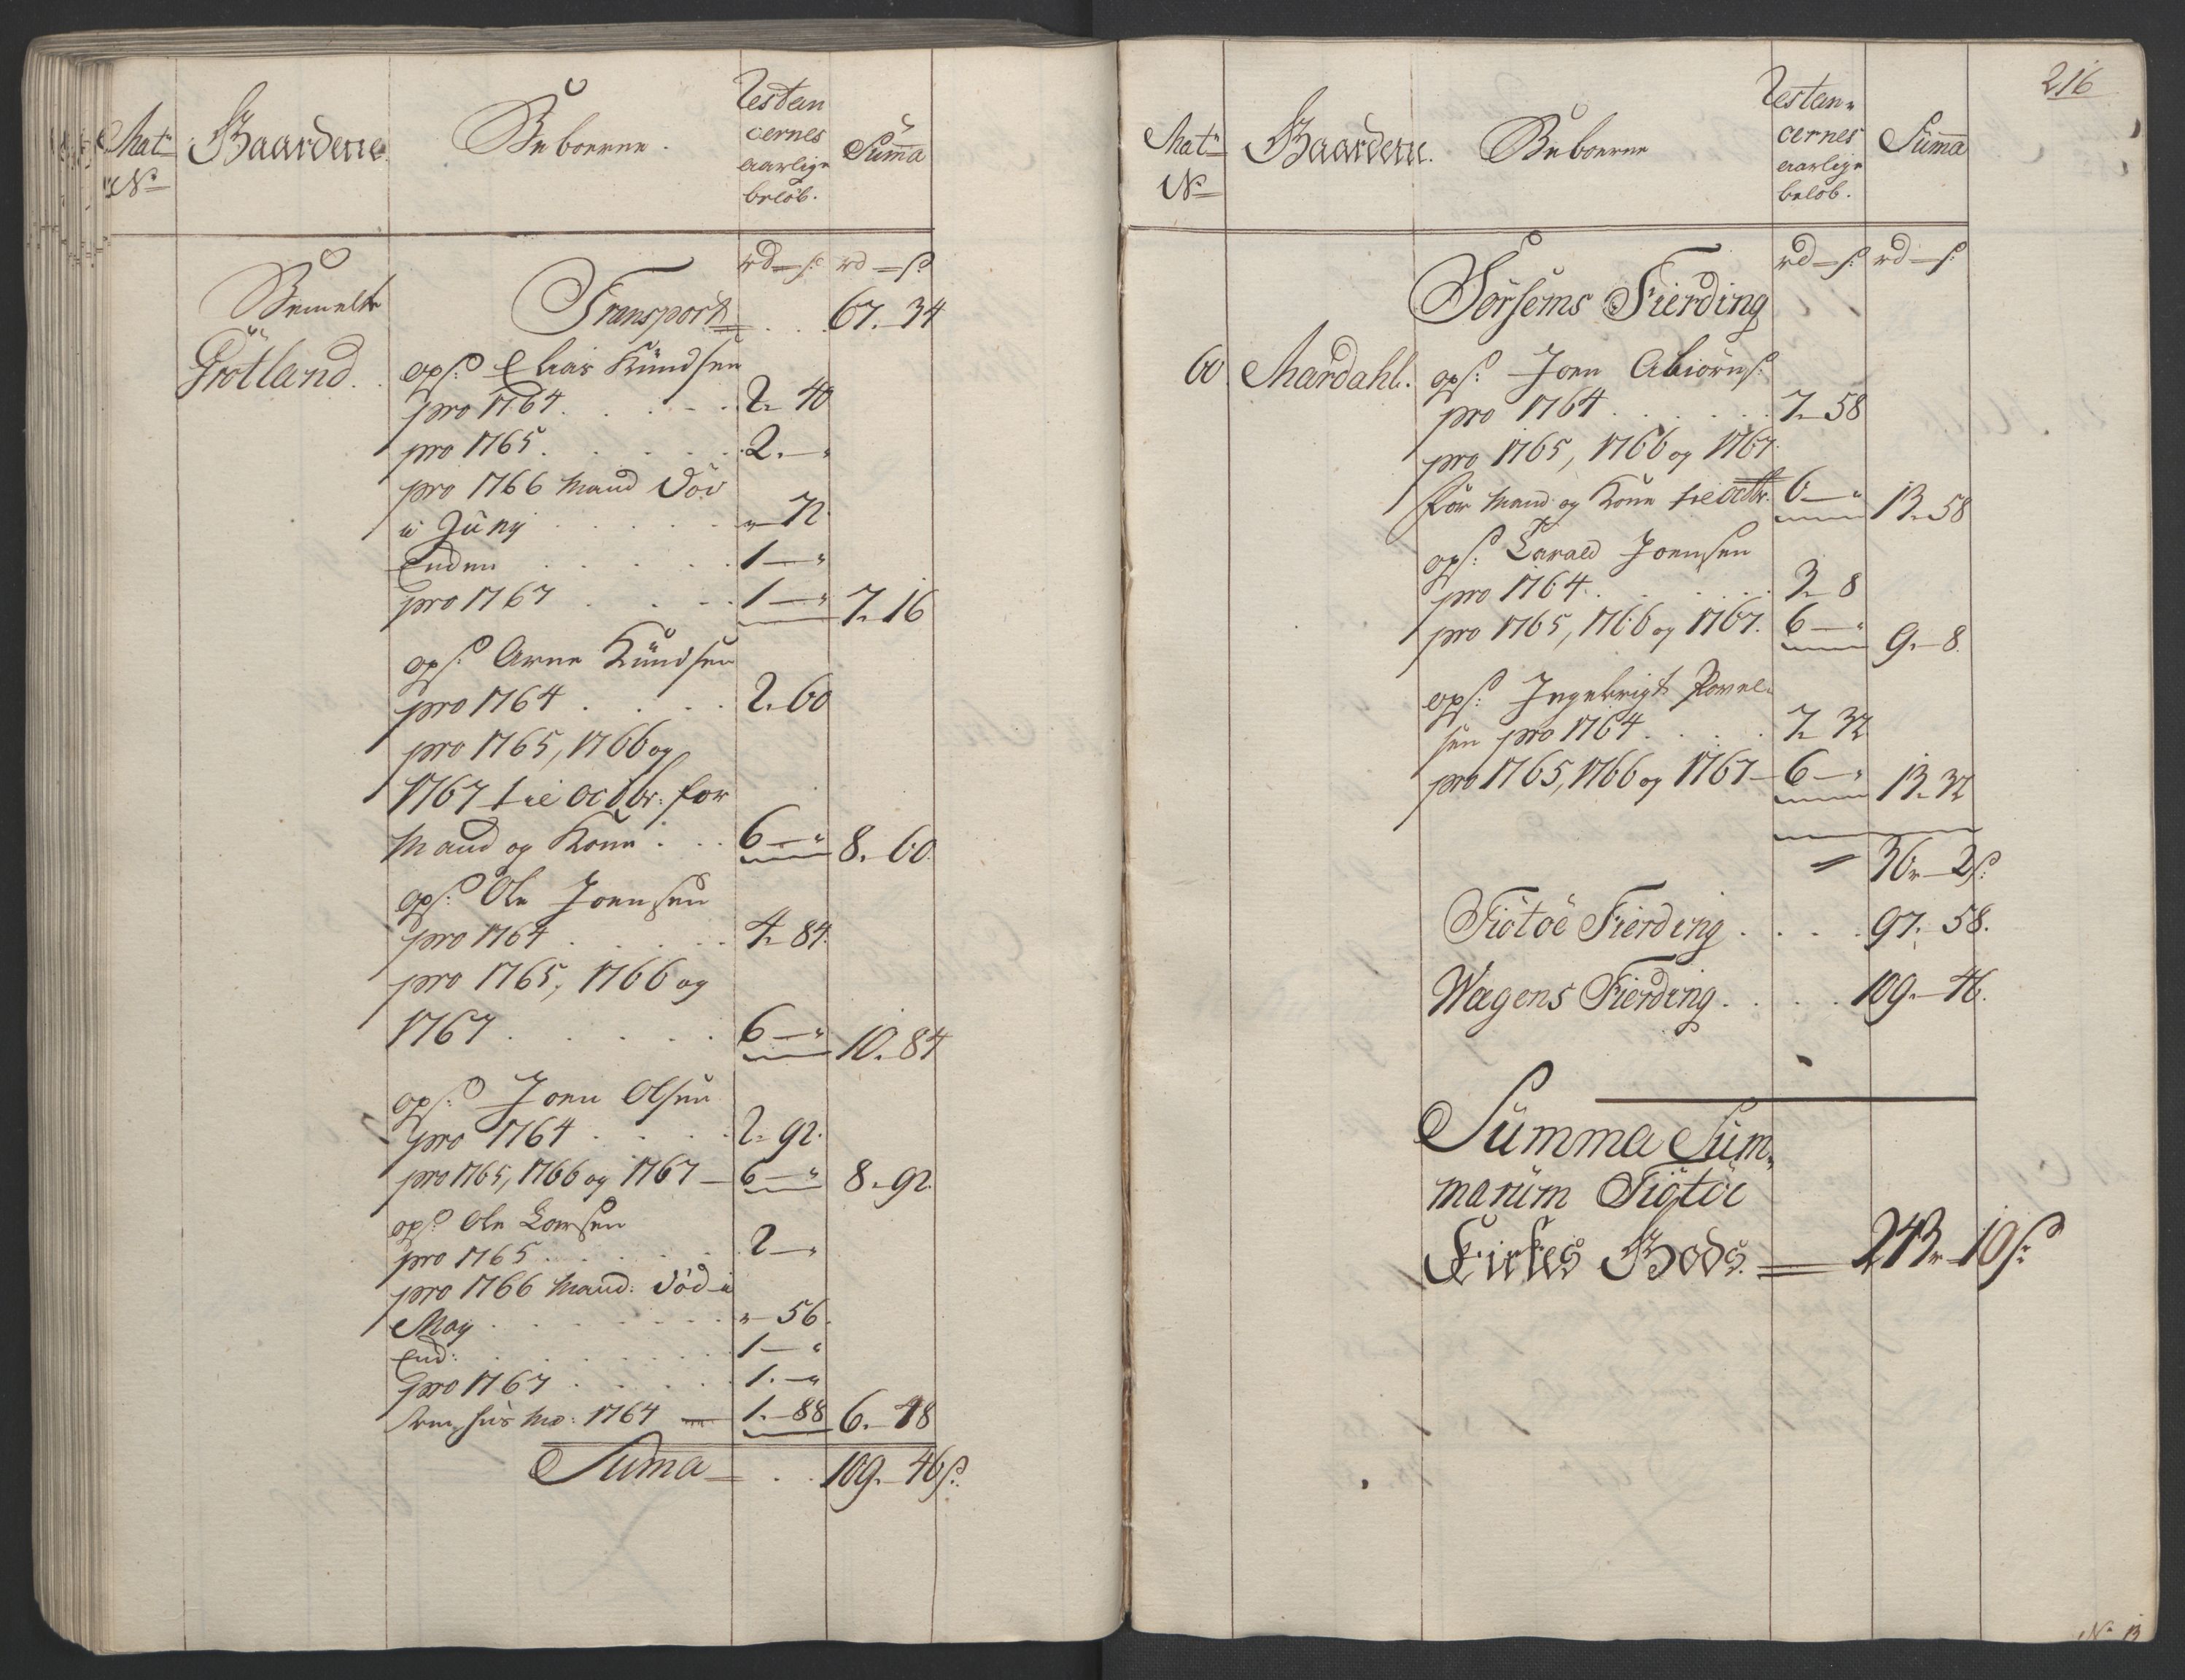 Matr
No
Gaardene
Beboerne.
Restan
cernes
aarlige
beløb.
Sum̅a
rd — s: rd — s:
Bemelte
Grötland.
Transport . . 67. 34
ops: Elias Knudsen
pro 1764 . . . . 2. 40
pro 1765 . . . . 2. — "
pro 1766 Mand Död
i Juny . . . . " 72
Enden . . . . 1 — "
pro 1767 . . . 1 — " 7. 16
ops: Arne Knudsen
pro 1764 . . . . 2. 60
pro 1765, 1766 og
1767 til Octbr: for
Mand og Kone . . 6 — " 8. 60
ops: Ole Joensen
pro 1764 . . . . 4. 84.
pro 1765, 1766 og
1767 . . . . . 6 — " 10. 84
ops: Joen Olsen
pro 1764 . . . . 2. 92.
pro 1765, 1766 og 1767 — 6 — " 8. 92.
ops: Ole Larsen
pro 1765 . . . . 2 — "
pro 1766 Mand: död i
May . . . . . " — 56.
End: . . . . . 1 — "
pro 1767 . . . . 1. — "
1764 — 1. — 88 6. 48
Sum̅a — . . 109. 46 s:
216
Matr
No
Gaardene.
Beboerne
Restan-
cernes
aarlige
beløb.
Sum̅a
rd — s: rd — s:
Sörsems Fierding
60 Mardahl. ops: Joen Abiörns:
pro 1764 . . . . 7. 58
pro 1765, 1766 og 1767.
for Mand og Kone til Octbr. 6 — " 13. 58
ops: Larald Joensen
pro 1764 . . . . 3. 8
pro 1765, 1766 og 1767. 6 — " 9. — 8.
ops: Ingebrigt Povel-
sen pro 1764 . . . . 7. 32
pro 1765, 1766 og 1767 — 6 — " 13. 32
36. — 2 s:
Tiötöe Fierding . . . . 97. 58.
Wægens Fierding . . . . 109. — 46.
Summa Sum-
marum Tiötöe
Kirkes Gods. — 243. 10 s:
No 13